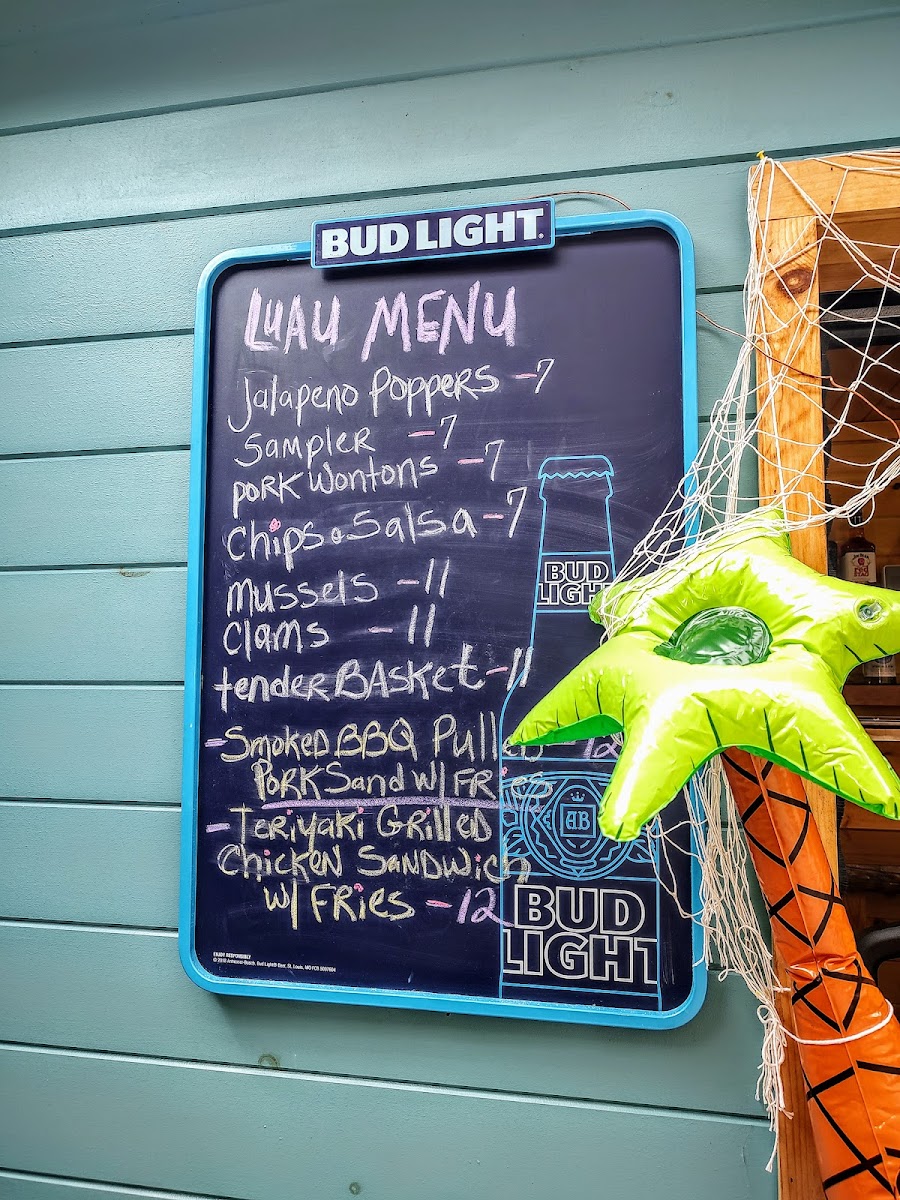 BUD LIGHT.
LUAU MENU
Jalapeno Poppers - 7
Sampler - 7
Pork Wontons - 7
Chips & Salsa - 7
Mussels - 11
Clams - 11
tender Basket - 11
- Smoked BBQ Pulled - 12
Pork Sand w/ Fries
- Teriyaki Grilled
Chicken Sandwich
w/ Fries - 12
BUD
LIGHT
AB
BUD
LIGHT
ENJOY RESPONSIBLY